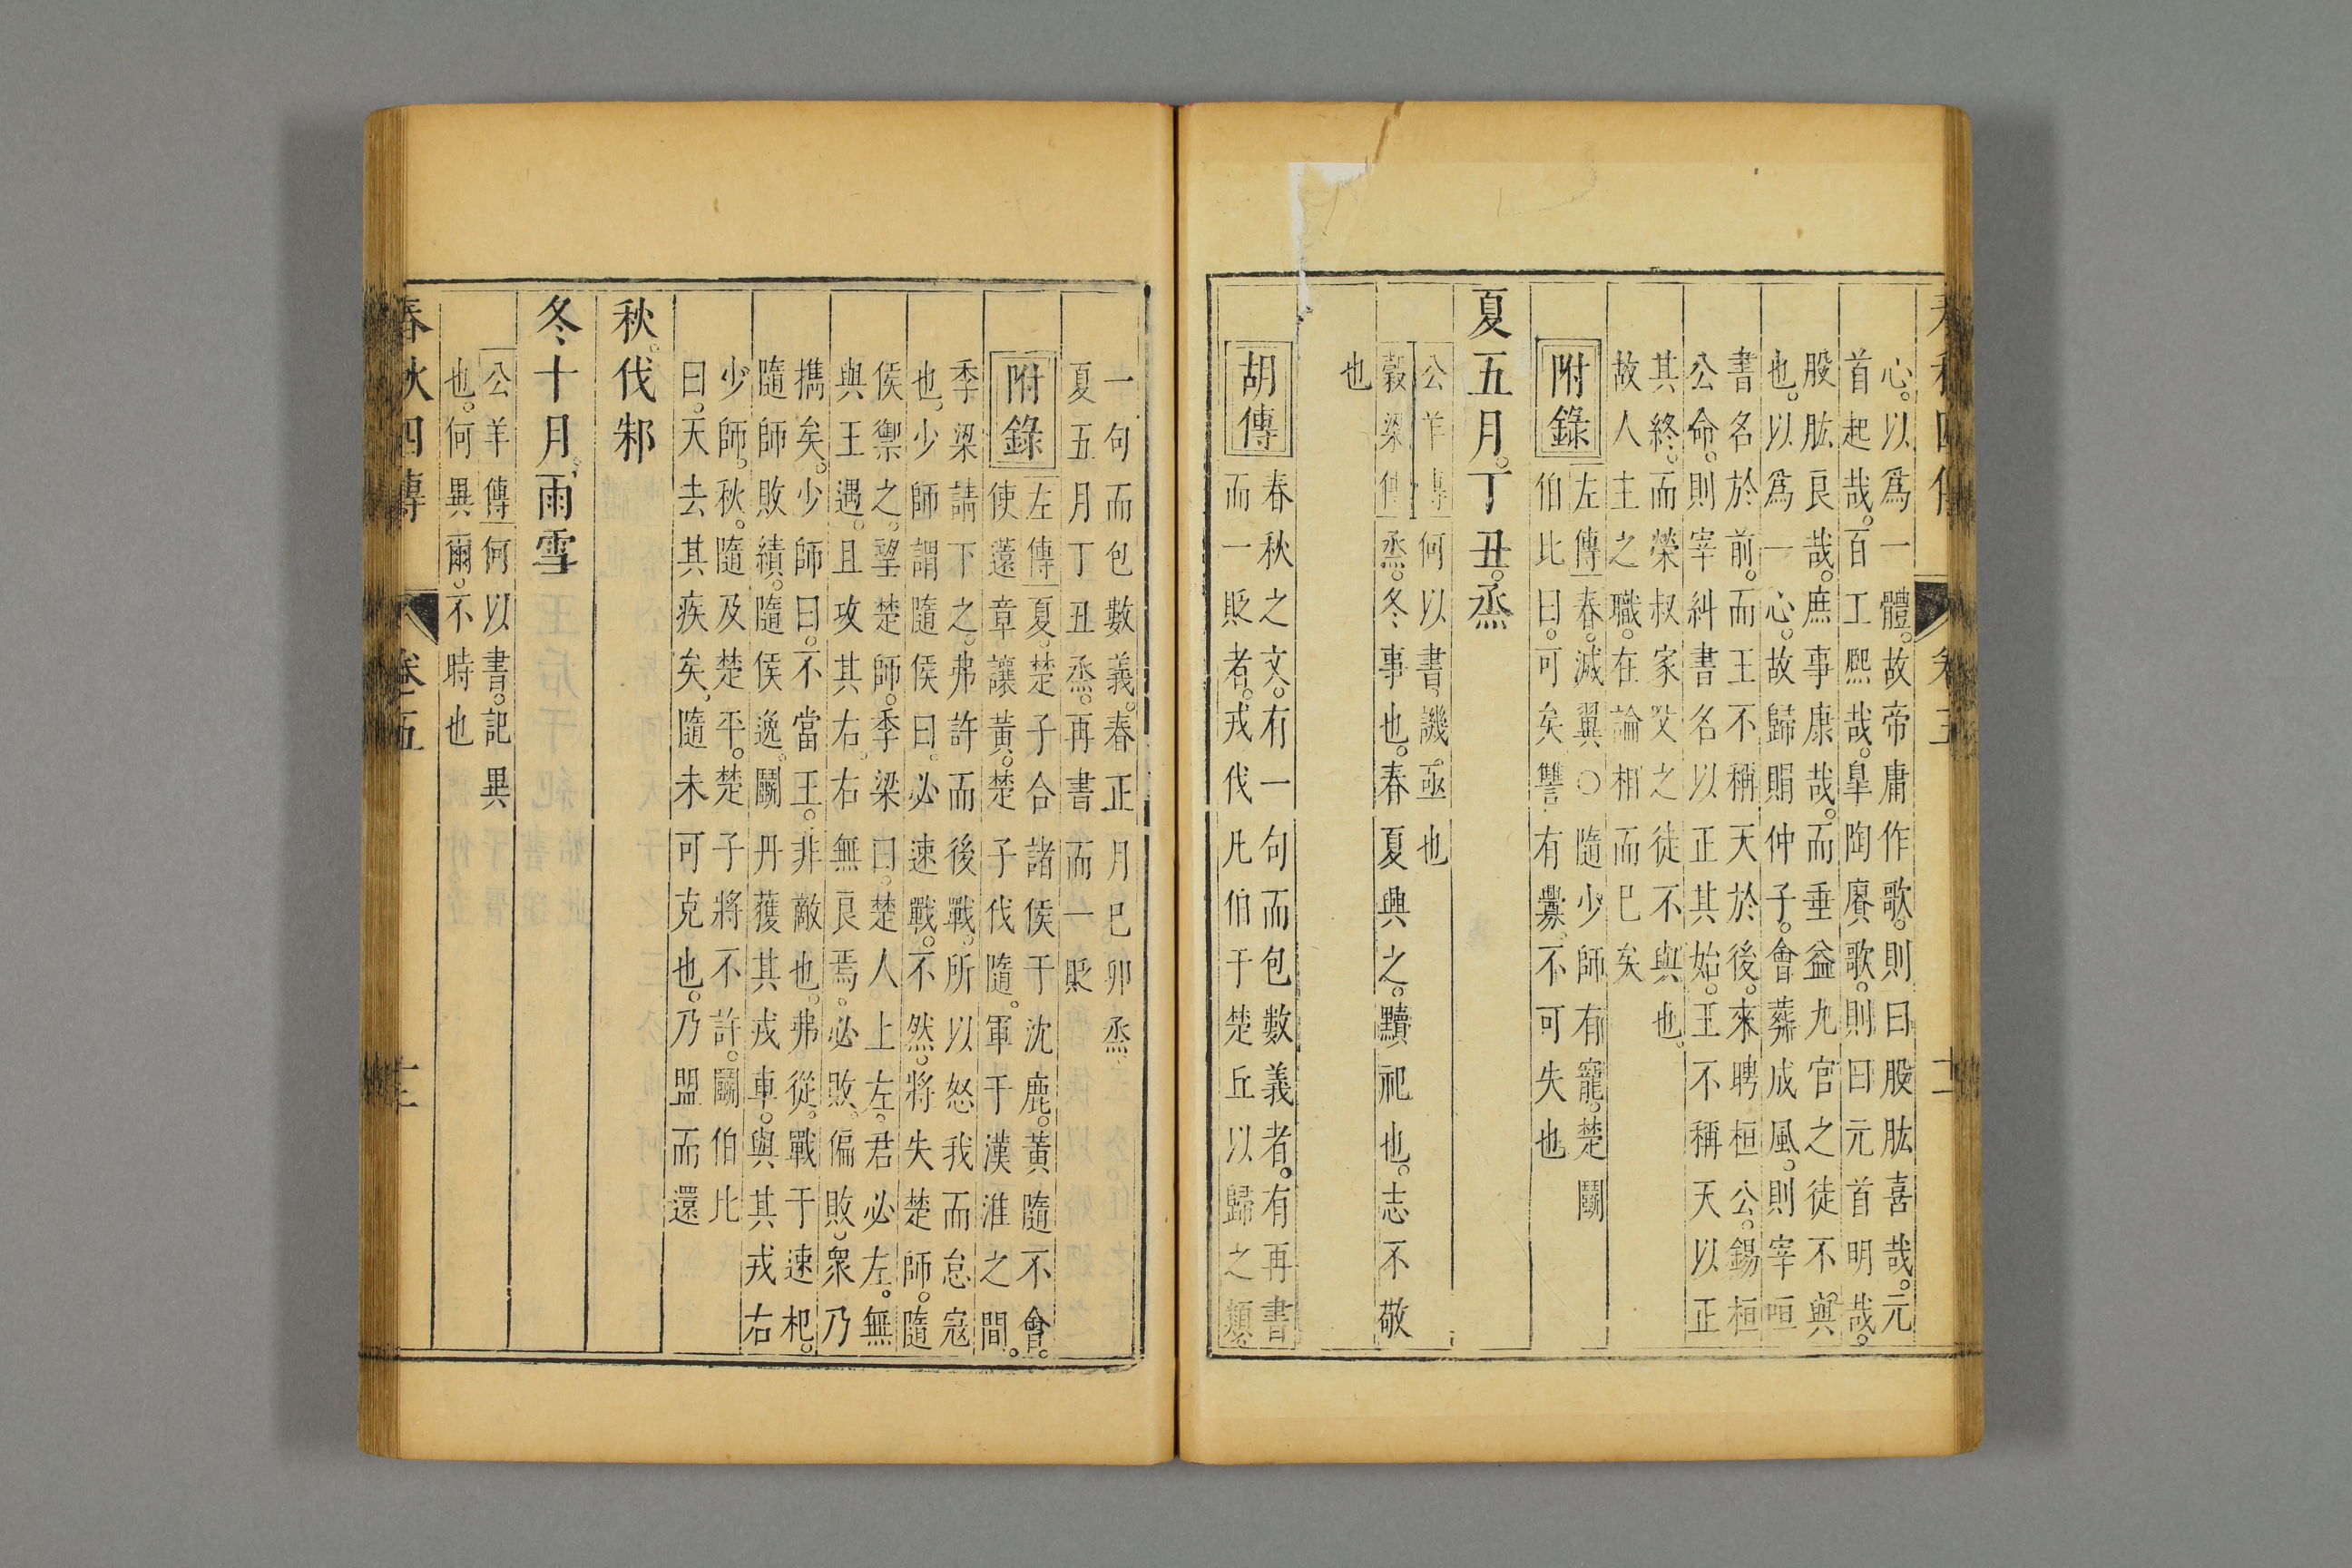 心。以爲一體。故帝庸作歌。則曰股肱喜哉。元
首起哉。百工熙哉。皐陶賡歌。則曰元首明哉。
股肱良哉。庶事康哉。而垂益九官之徒不與
也。以爲一心。故歸賵仲子。會葬成風。則宰咺
書名於前。而王不稱天於後。來聘桓公。錫桓
公命。則宰糾書名以正其始。王不稱天以正
其終。而榮叔家父之徒不與也。
故人主之職。在論相而已矣
附錄
左傳春。滅翼○隨少師有寵。楚鬬
伯比曰。可矣讐有釁。不可失也
夏五月。丁丑。烝
公羊傳何以書。譏。亟也
穀梁傳烝。冬事也。春夏興之。黷祀也。志不敬
也
胡傳
春秋之文。有一句而包數義者。有再書
而一貶者。戎伐凡伯于楚丘以歸之類。
一句而包數義。春正月已卯烝
夏五月丁丑烝。再書而一貶
附錄
左傳夏。楚子合諸侯于沈鹿。黃隨不會。
使薳章讓黃。楚子伐隨。軍于漢淮之間。
季梁請下之。弗許而後戰。所以怒我而怠寇
也。少師謂隨侯曰。必速戰。不然。將失楚師。隨
侯禦之。望楚師。季梁曰。楚人上左。君必左。無
與王遇。且攻其右。右無良焉。必敗。偏敗。衆乃
攜矣。少師曰。不當王。非敵也。弗從。戰于速杞。
隨師敗績。隨侯逸。鬬丹獲其戎車。與其戎右
少師。秋。隨及楚平。楚子將不許。鬬伯比
曰。天去其疾矣。隨未可克也。乃盟而還
秋。伐邾
冬十月。雨雪
公羊傳何以書。記異
也。何異爾。不時也
春秋四傳 卷五